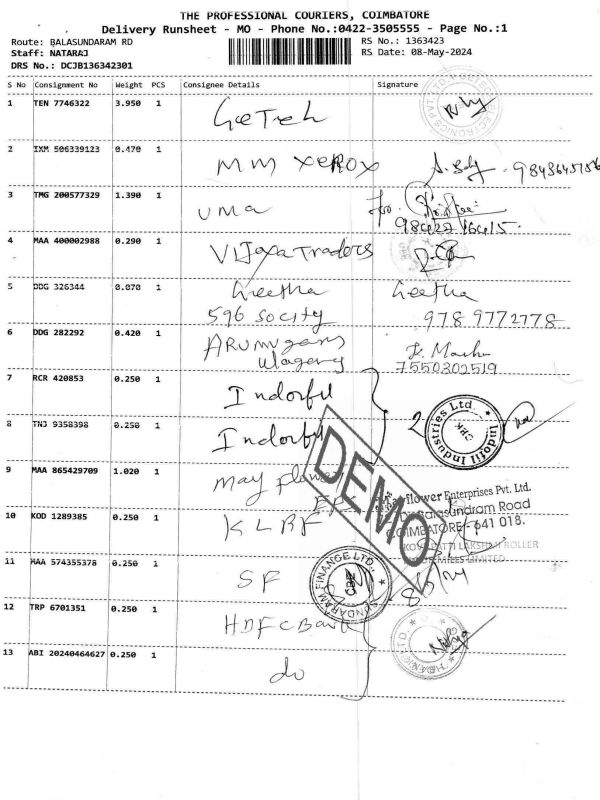 THE PROFESSIONAL COURIERS, COIMBATORE
Delivery Runsheet - MO - Phone No.:0422-3505555 - Page No.:1
Route: BALASUNDARAM RD
RS No.: 1363423
Staff: NATARAJ
RS Date: 08-May-2024
DRS No.: DCJB136342301
S No Consignment No Weight PCS Consignee Details Signature
1 TEN 7746322 3.950 1 GeTech
2 IXM 506339123 0.470 1 MM XEROX
3 TMG 200577329 1.390 1 UMA
4 MAA 400002988 0.290 1 Vijaya Traders
5 DDG 326344 0.070 1 Geetha Geetha
596 Socity 978 9772778
6 DDG 282292 0.420 1 ARUMUGam
7550302519
7 RCR 420853 0.250 1 Indofil
8 TNJ 9358398 0.250 1 Indofil 2
Indofil Industries Ltd
CBE
9 MAA 865429709 1.020 1 May flower
DEMO
Mayflower Enterprises Pvt. Ltd.
Balasundram Road
COIMBATORE - 641 018.
10 KOD 1289385 0.250 1 KLRF
LAKSHMI ROLLER
LIMITED
11 MAA 574355378 0.250 1 SF
SUNDARAM FINANCE LTD.,
CBE
8/5/24
12 TRP 6701351 0.250 1 HDFC Bank
13 ABI 20240464627 0.250 1 do